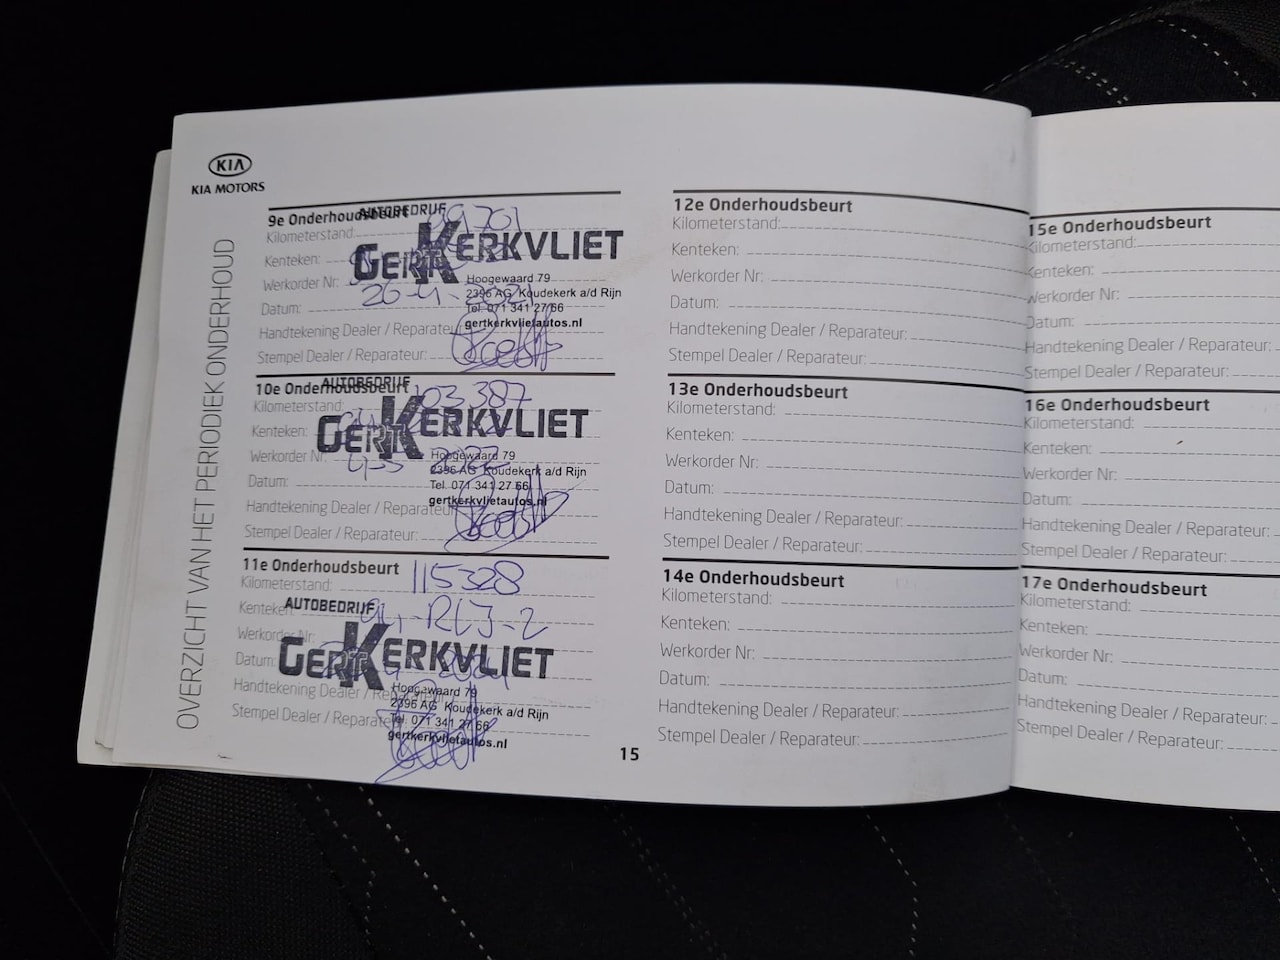 KIA
KIA MOTORS
OVERZICHT VAN HET PERIODIEK ONDERHOUD
9e Onderhoudsbeurt
AUTOBEDRIJF
Kilometerstand:
GERT KERKVLIET
Kenteken:
Hoogewaard 79
Werkorder Nr:
2396 AG Koudekerk a/d Rijn
Datum: 26-4-2021
Tel. 071 341 27 66
gertkerkvlietautos.nl
Handtekening Dealer / Reparateur:
Stempel Dealer / Reparateur:
10e Onderhoudsbeurt
AUTOBEDRIJF
Kilometerstand: 103387
GERT KERKVLIET
Kenteken:
Hoogewaard 79
Werkorder Nr: 2022
2396 AG Koudekerk a/d Rijn
Datum:
Tel. 071 341 27 66
gertkerkvlietautos.nl
Handtekening Dealer / Reparateur:
Stempel Dealer / Reparateur:
11e Onderhoudsbeurt
Kilometerstand: 115328
Kenteken: RLJ-2
AUTOBEDRIJF
Werkorder Nr:
GERT KERKVLIET
Datum:
Hoogewaard 79
Handtekening Dealer / Reparateur:
2396 AG Koudekerk a/d Rijn
Stempel Dealer / Reparateur:
Tel. 071 341 27 66
gertkerkvlietautos.nl
15
12e Onderhoudsbeurt
Kilometerstand:
Kenteken:
Werkorder Nr:
Datum:
Handtekening Dealer / Reparateur:
Stempel Dealer / Reparateur:
13e Onderhoudsbeurt
Kilometerstand:
Kenteken:
Werkorder Nr:
Datum:
Handtekening Dealer / Reparateur:
Stempel Dealer / Reparateur:
14e Onderhoudsbeurt
Kilometerstand:
Kenteken:
Werkorder Nr:
Datum:
Handtekening Dealer / Reparateur:
Stempel Dealer / Reparateur:
15e Onderhoudsbeurt
Kilometerstand:
Kenteken:
Werkorder Nr:
Datum:
Handtekening Dealer / Reparateur:
Stempel Dealer / Reparateur:
16e Onderhoudsbeurt
Kilometerstand:
Kenteken:
Werkorder Nr:
Datum:
Handtekening Dealer / Reparateur:
Stempel Dealer / Reparateur:
17e Onderhoudsbeurt
Kilometerstand:
Kenteken:
Werkorder Nr:
Datum:
Handtekening Dealer / Reparateur:
Stempel Dealer / Reparateur: